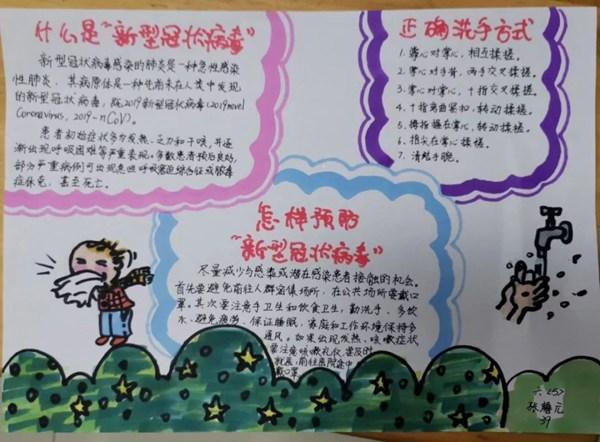 什么是“新型冠状病毒”
新型冠状病毒感染的肺炎是一种急性感染
性肺炎，其病原体是一种先前未在人类中发现
的新型冠状病毒，既2019新型冠状病毒(2019novel
Coronavirus, 2019-nCoV)。
患者初始症状多为发热、乏力和干咳，并逐
渐出现呼吸困难等严重表现。多数患者预后良好，
部分严重病例可出现急性呼吸窘迫综合征或脓毒
症休克，甚至死亡。
正确洗手方式
1. 掌心对掌心，相互揉搓。
2. 掌心对手背，两手交叉揉搓。
3. 掌心对掌心，十指交叉揉搓。
4. 十指弯曲紧扣，转动揉搓。
5. 拇指握在掌心，转动揉搓。
6. 指尖在掌心揉搓。
7. 清洁手腕。
怎样预防
“新型冠状病毒”
尽量减少与感染或潜在感染患者接触的机会。
首先要避免前往人群密集场所，在公共场所要戴口
罩。其次要注意手卫生和饮食卫生，勤洗手、多饮
水、避免疲劳、保证睡眠，家庭和工作环境保持多
通风。如果出现发热、咳嗽症状
要注意咳嗽礼仪，要及时
就医，前往医院途中
戴口罩
六、<5>
张
元
39